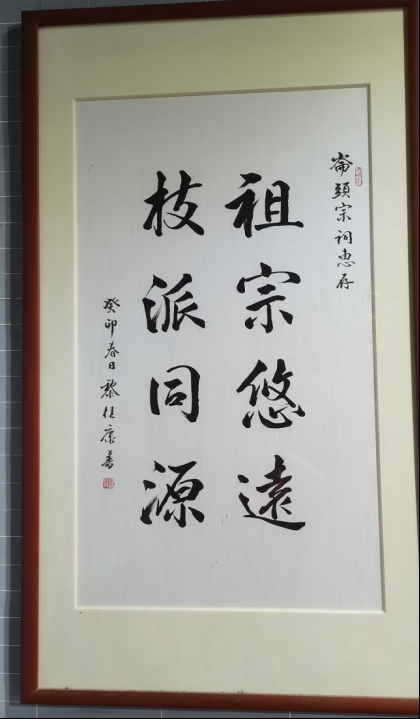 崙頭宗祠惠存
祖宗悠遠
枝派同源
癸卯春日黎桂康書